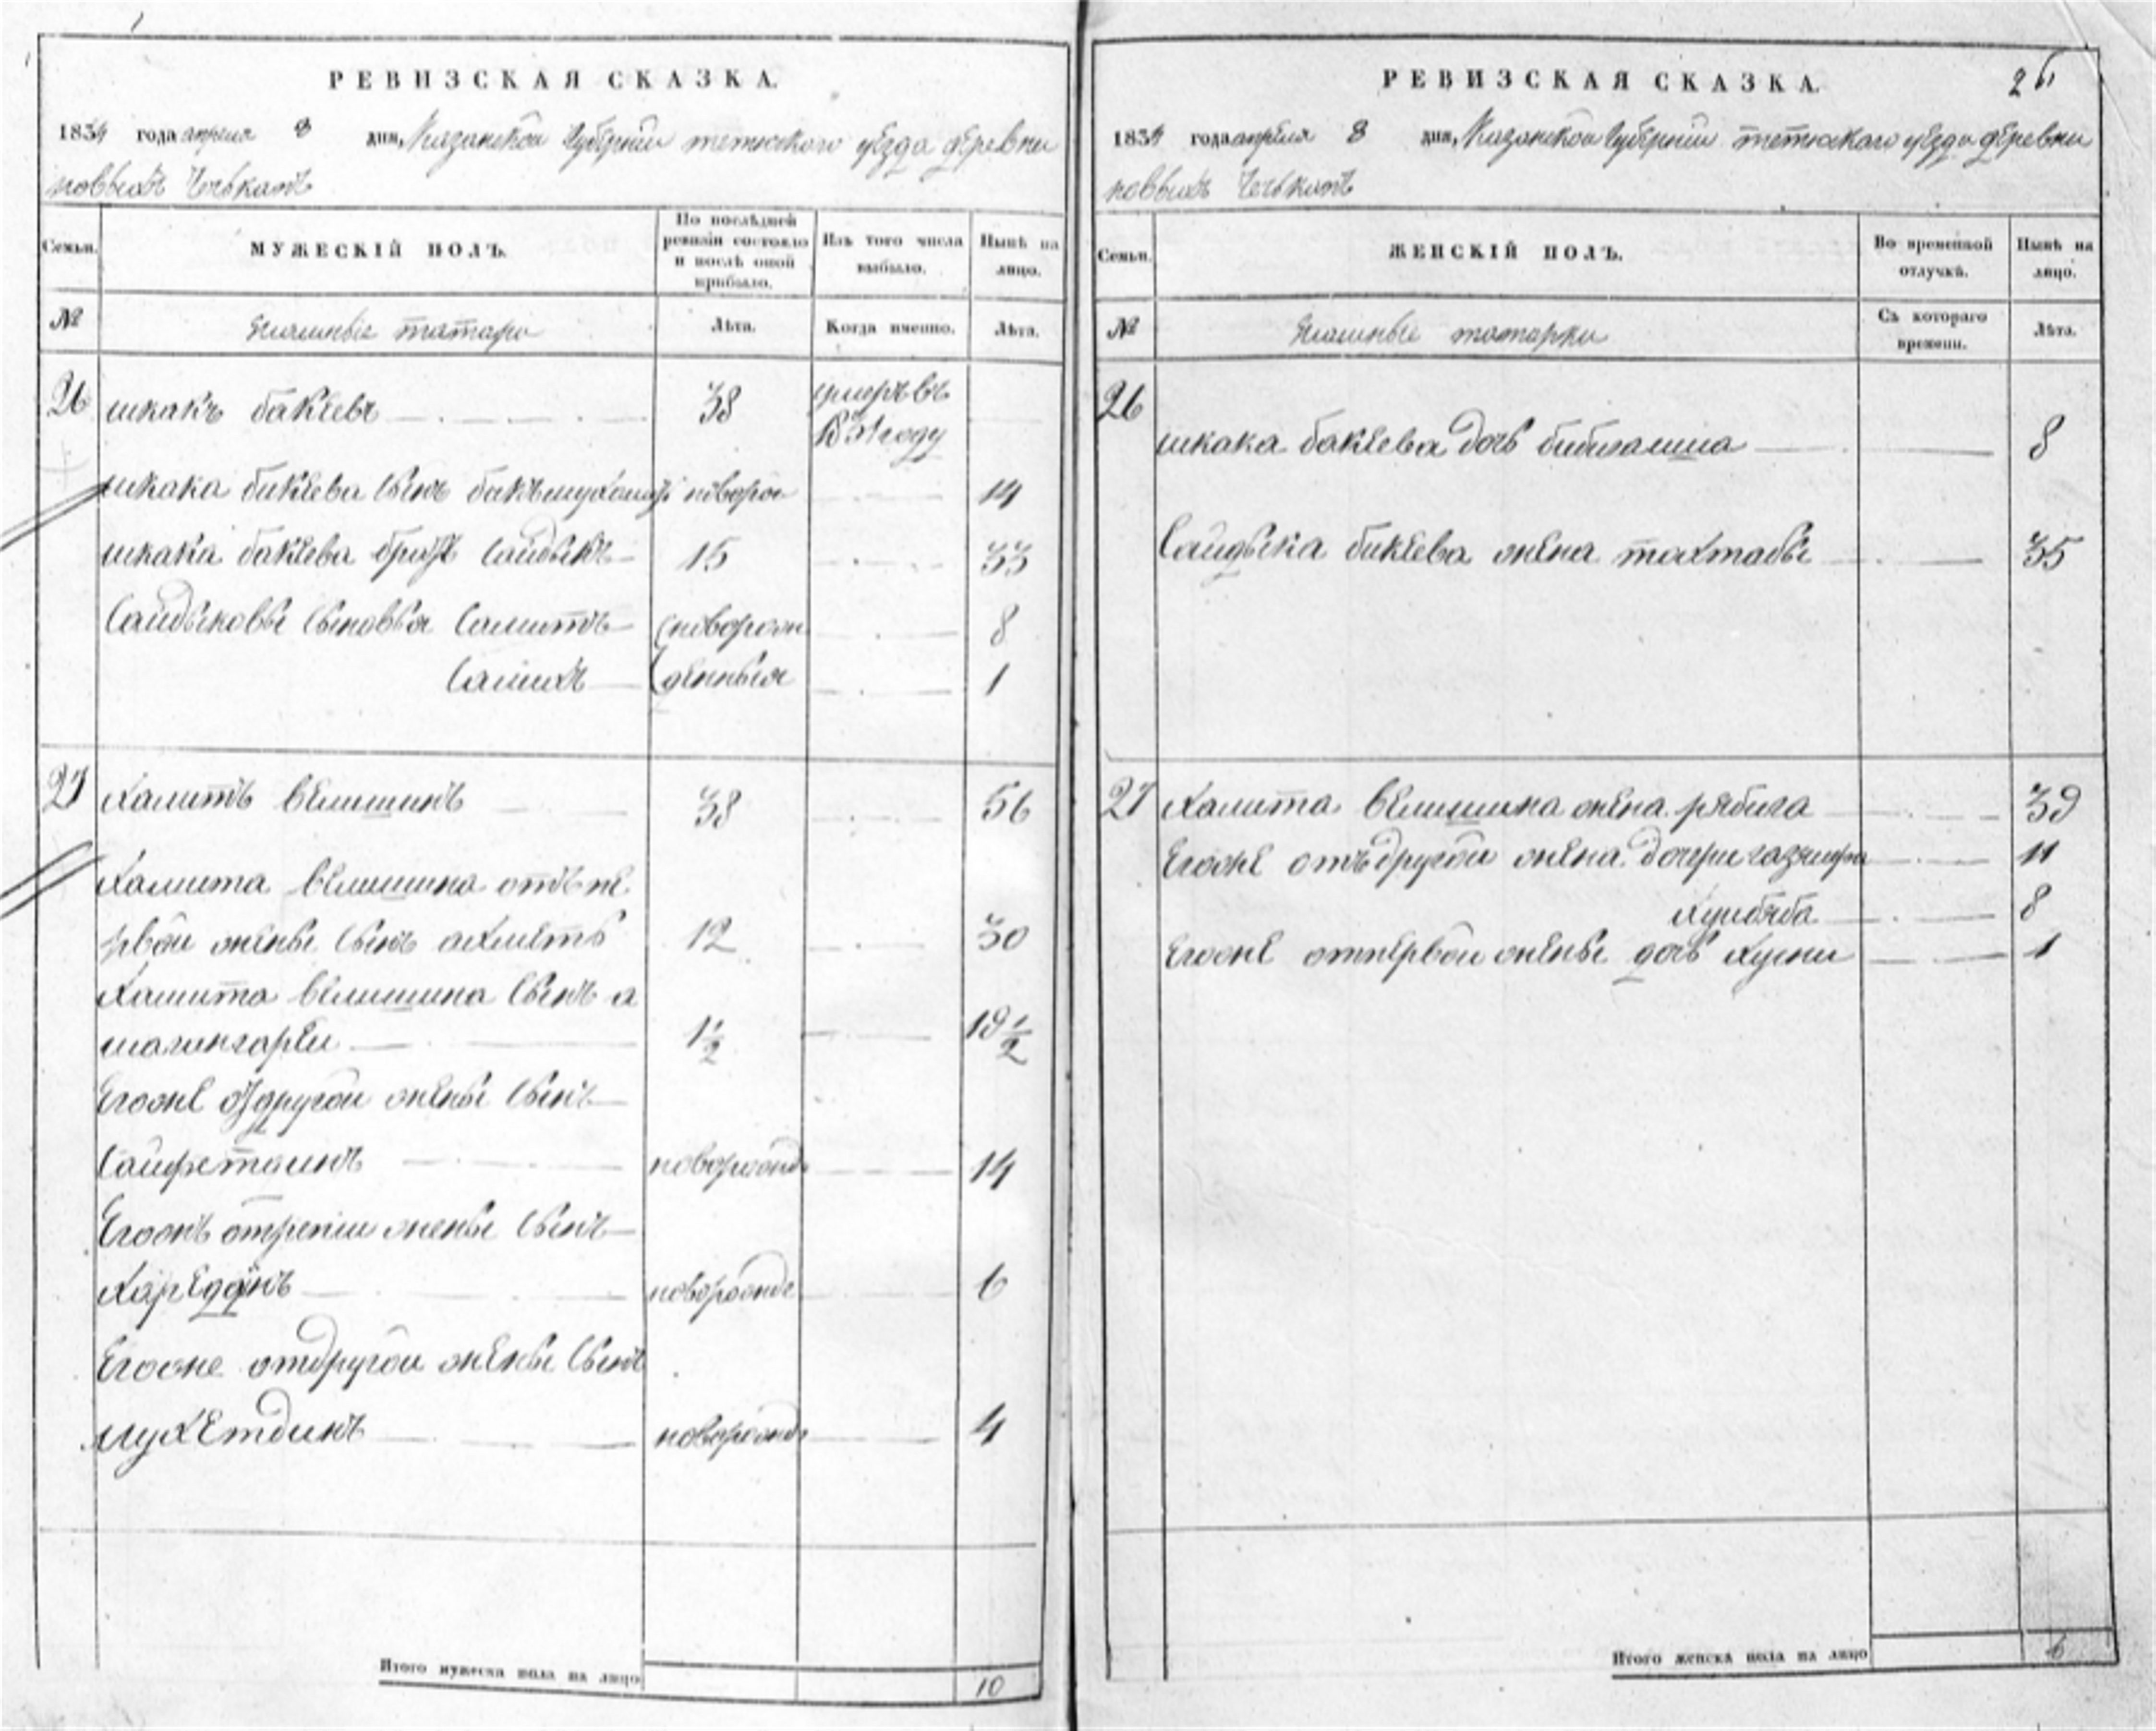 РЕВИЗСКАЯ СКАЗКА.
1834 года апреля 8 дня, Казанской Губернии тетюского уезда деревни
новыхъ Чечкапъ
Семьи. МУЖЕСКІЙ ПОЛЪ. По послѣдней ревизіи состояло и послѣ оной прибыло. Изъ того числа выбыло. Нынѣ на лицо.
№ татары Лѣта. Когда именно. Лѣта.
26 шкакъ бакеевъ 38 умеръ въ
В 31 году
шкака бикеева сынъ новорож 14
шкака бакеева братъ Сайдыкъ 15 33
Сайдыковы сыновья Самитъ новорож 8
Салихъ денныя 1
27 Хамитъ велишинъ 38 56
Хамита велишина отъ пе
рвой жены сынъ ахметъ 12 30
Хамита велишина сынъ а
шагингарей 1 1/2 19 1/2
Егоже от другой жены сынъ
Сайфетдинъ новорожд 14
Егожъ от третей жены сынъ
Харединъ новорожде 6
Егоже отдругой жены сынъ
мухетдинъ новорожде 4
Итого мужеска пола на лицо 10
РЕВИЗСКАЯ СКАЗКА.
26
1834 года апреля 8 дня, Казанской Губернии тетюского уезда деревни
новыхъ Чечкапъ
Семьи. ЖЕНСКІЙ ПОЛЪ. Во временной отлучкѣ. Нынѣ на лицо.
№ татарки Съ котораго времени. Лѣта.
26
шкака бакеева дочь 8
Сайдыка бикеева жена махтабы 35
27 Хамита велишина жена рябига 39
Егоже отъ другой жена дочери 11
Хупбяба 8
Егоже отпервой жены дочь Хусни 1
Итого женска пола на лицо 6